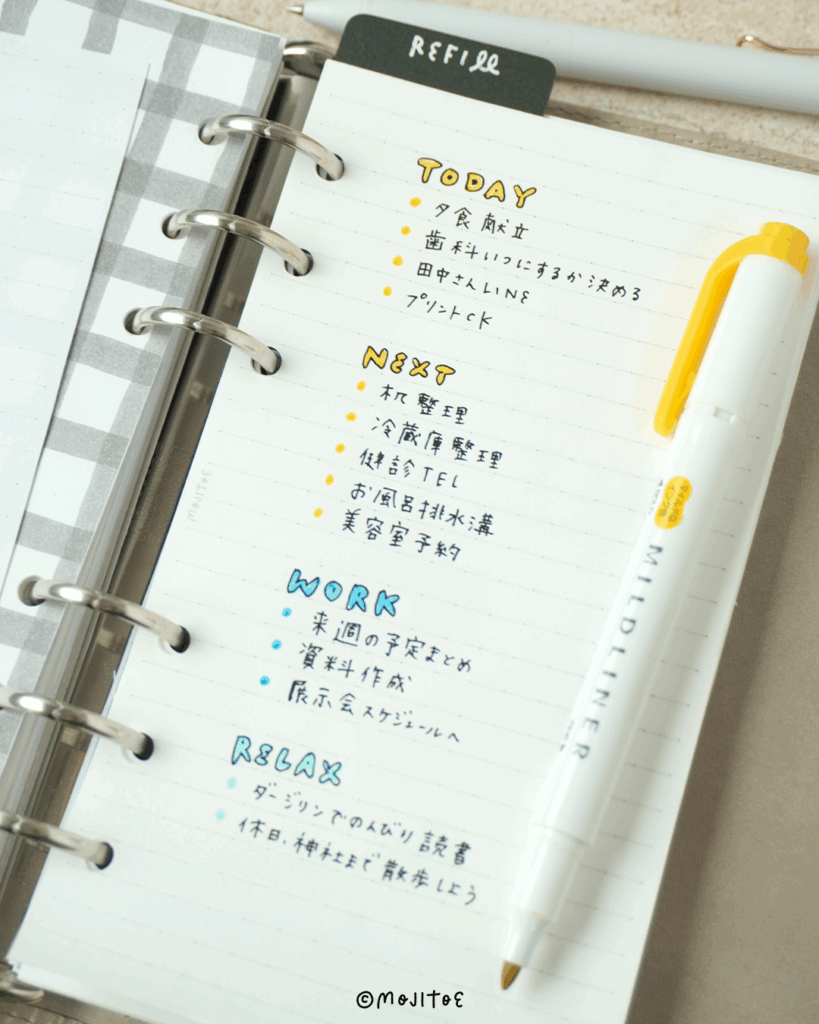 REFILL
TODAY
夕食献立
歯科いつにするか決める
田中さんLINE
プリントCK
NEXT
机整理
冷蔵庫整理
健診TEL
お風呂排水溝
美容室予約
WORK
来週の予定まとめ
資料作成
展示会スケジュールへ
RELAX
ダージリンでのんびり読書
休日、神社まで散歩しよう
MILDLINER
MOJITOE
©MOJITOE